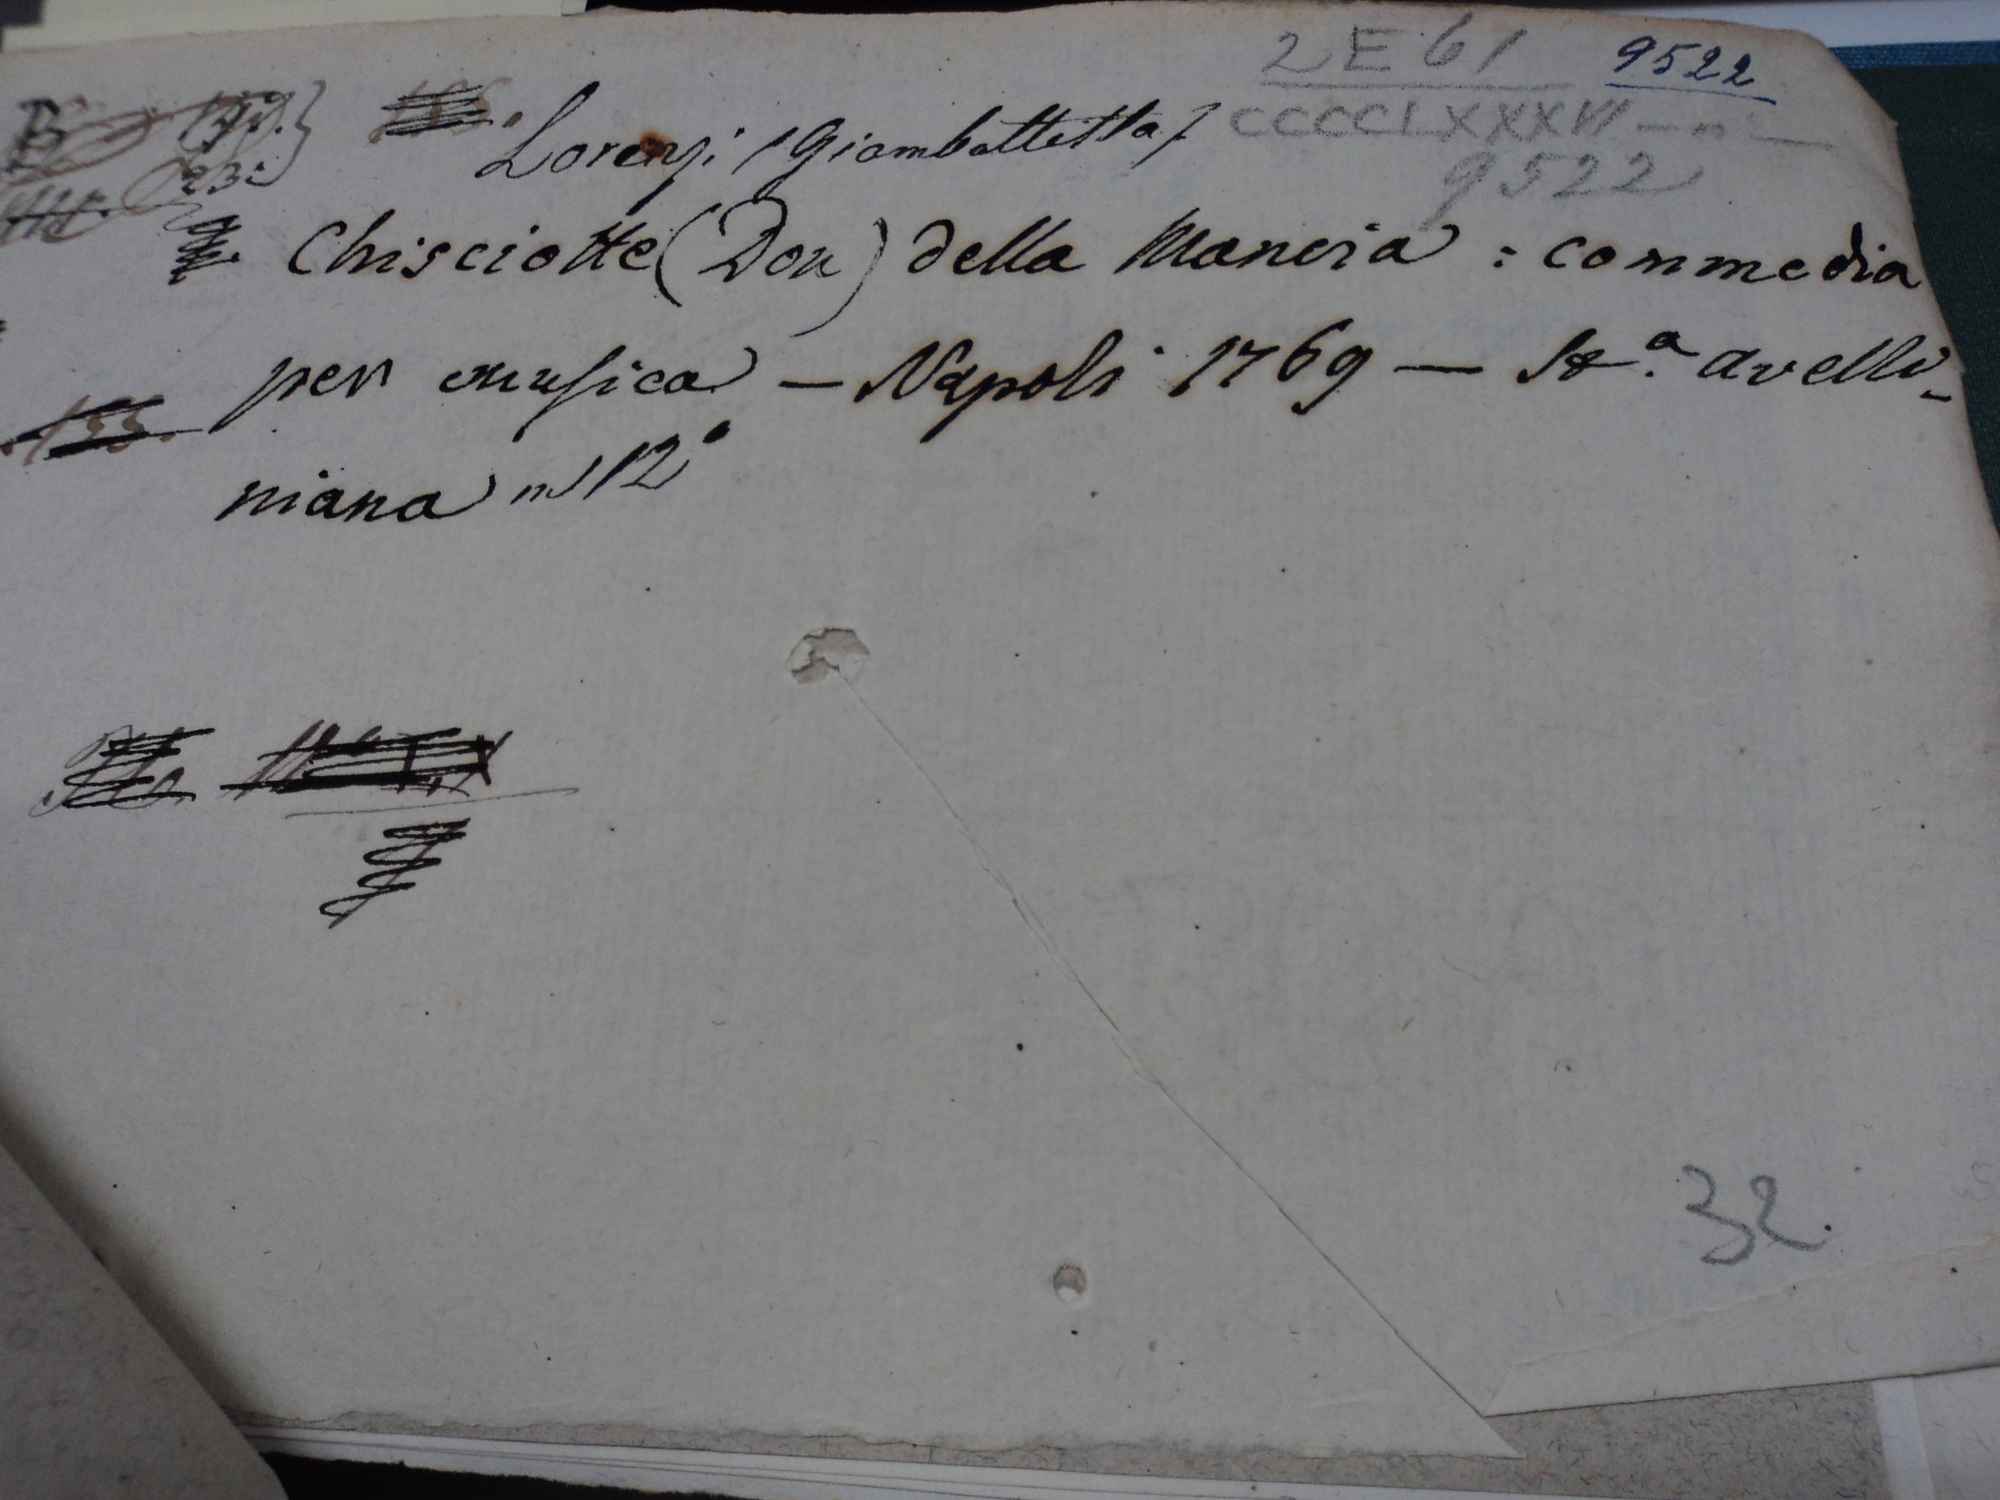 2 E 61 9522
CCCCCLXXXVI
9522
Lorenzi (Giambattista)
Chisciotte (Don) della Mancia : commedia
per musica — Napoli 1769 — St.ª avelli-
niana in 12°
32.